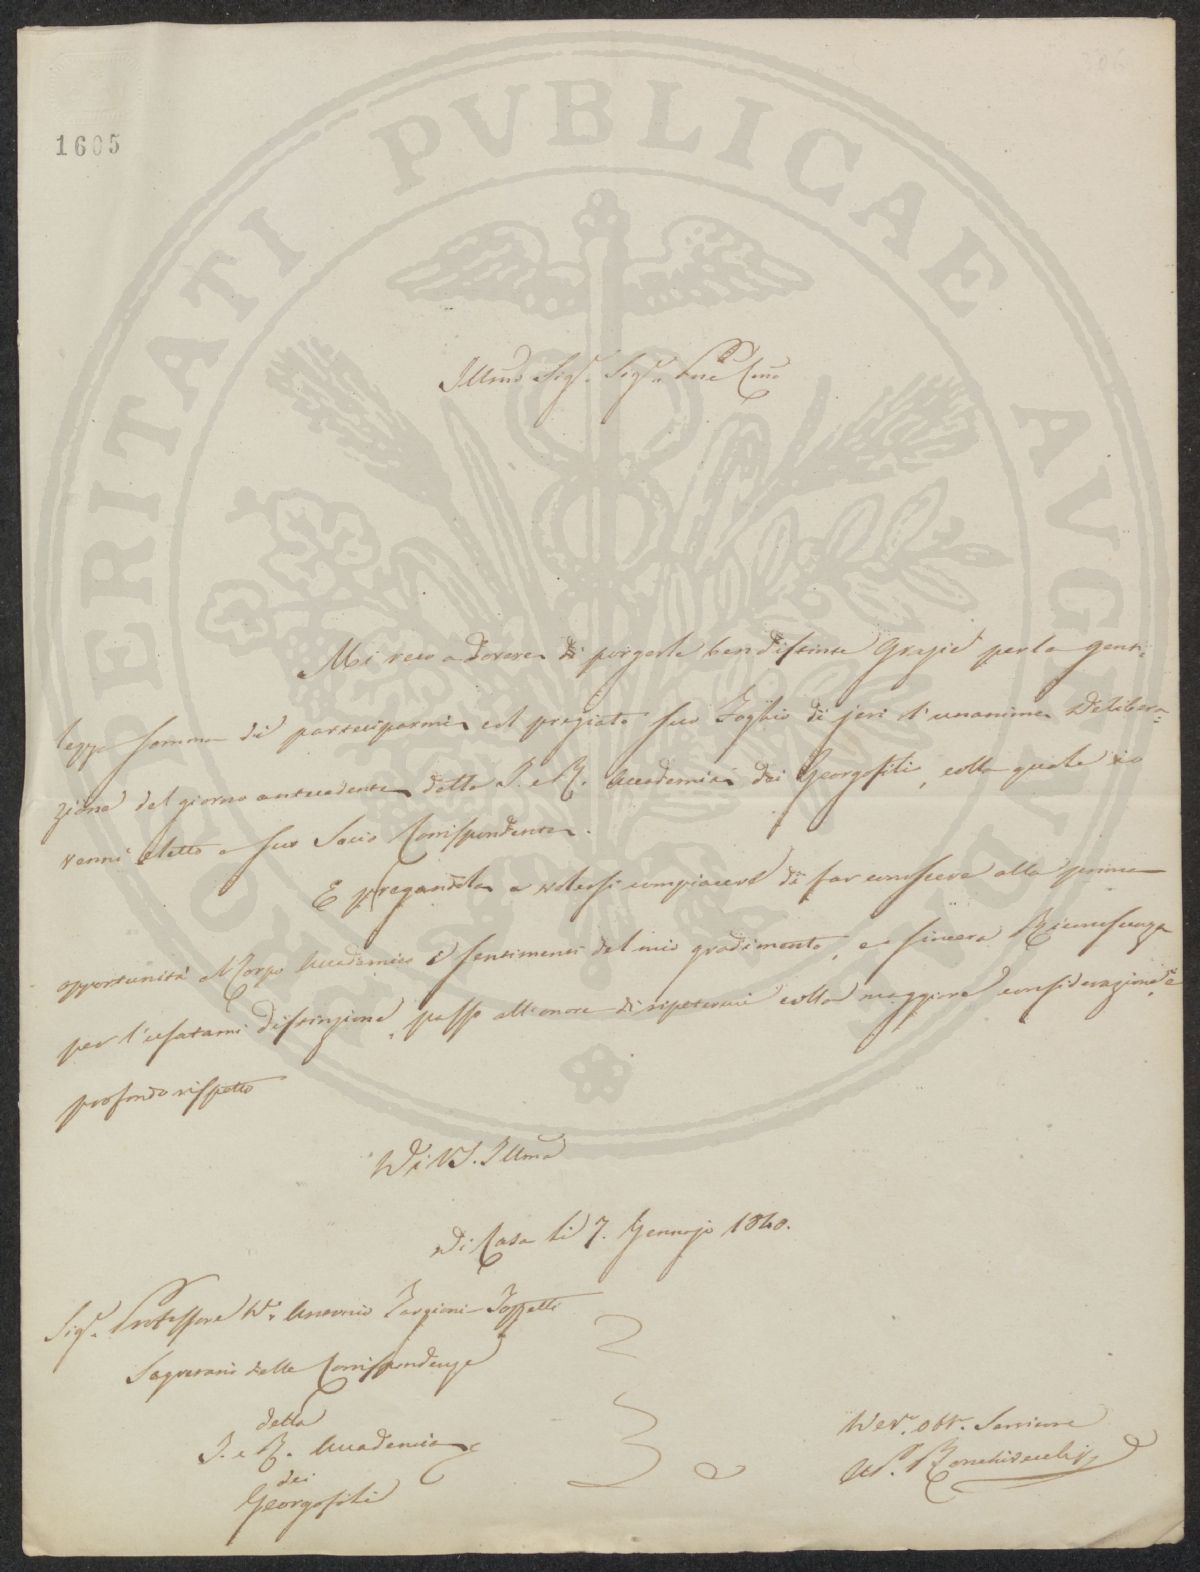 PROSPERITATI PVBLICAE AVGENDAE
1605
Illmo Sigr. Sigr. Prne Colmo
Mi reco a dovere di porgerle ben distinte Grazie per la genti-
lezza somma di parteciparmi col pregiato suo Foglio di jeri l'unanime Delibera-
zione del giorno antecedente della I. e R. Accademia dei Georgofili, colla quale io
venni eletto a suo Socio Corrispondente.
E pregandola a volersi compiacere di far conoscere alla prima
opportunità al Corpo Accademico i sentimenti del mio gradimento, e sincera Riconoscenza
per l'usatami distinzione, passo all'onore di ripetermi colla maggiore considerazione, e
profondo rispetto
Di V.S. Illma
Di Casa li 7. Gennajo 1840.
Sigr. Professore Dr. Antonio Targioni Tozzetti
Segretario delle Corrispondenze
della
I. e R. Accademia
dei
Georgofili
Devo. obbo. Servitore